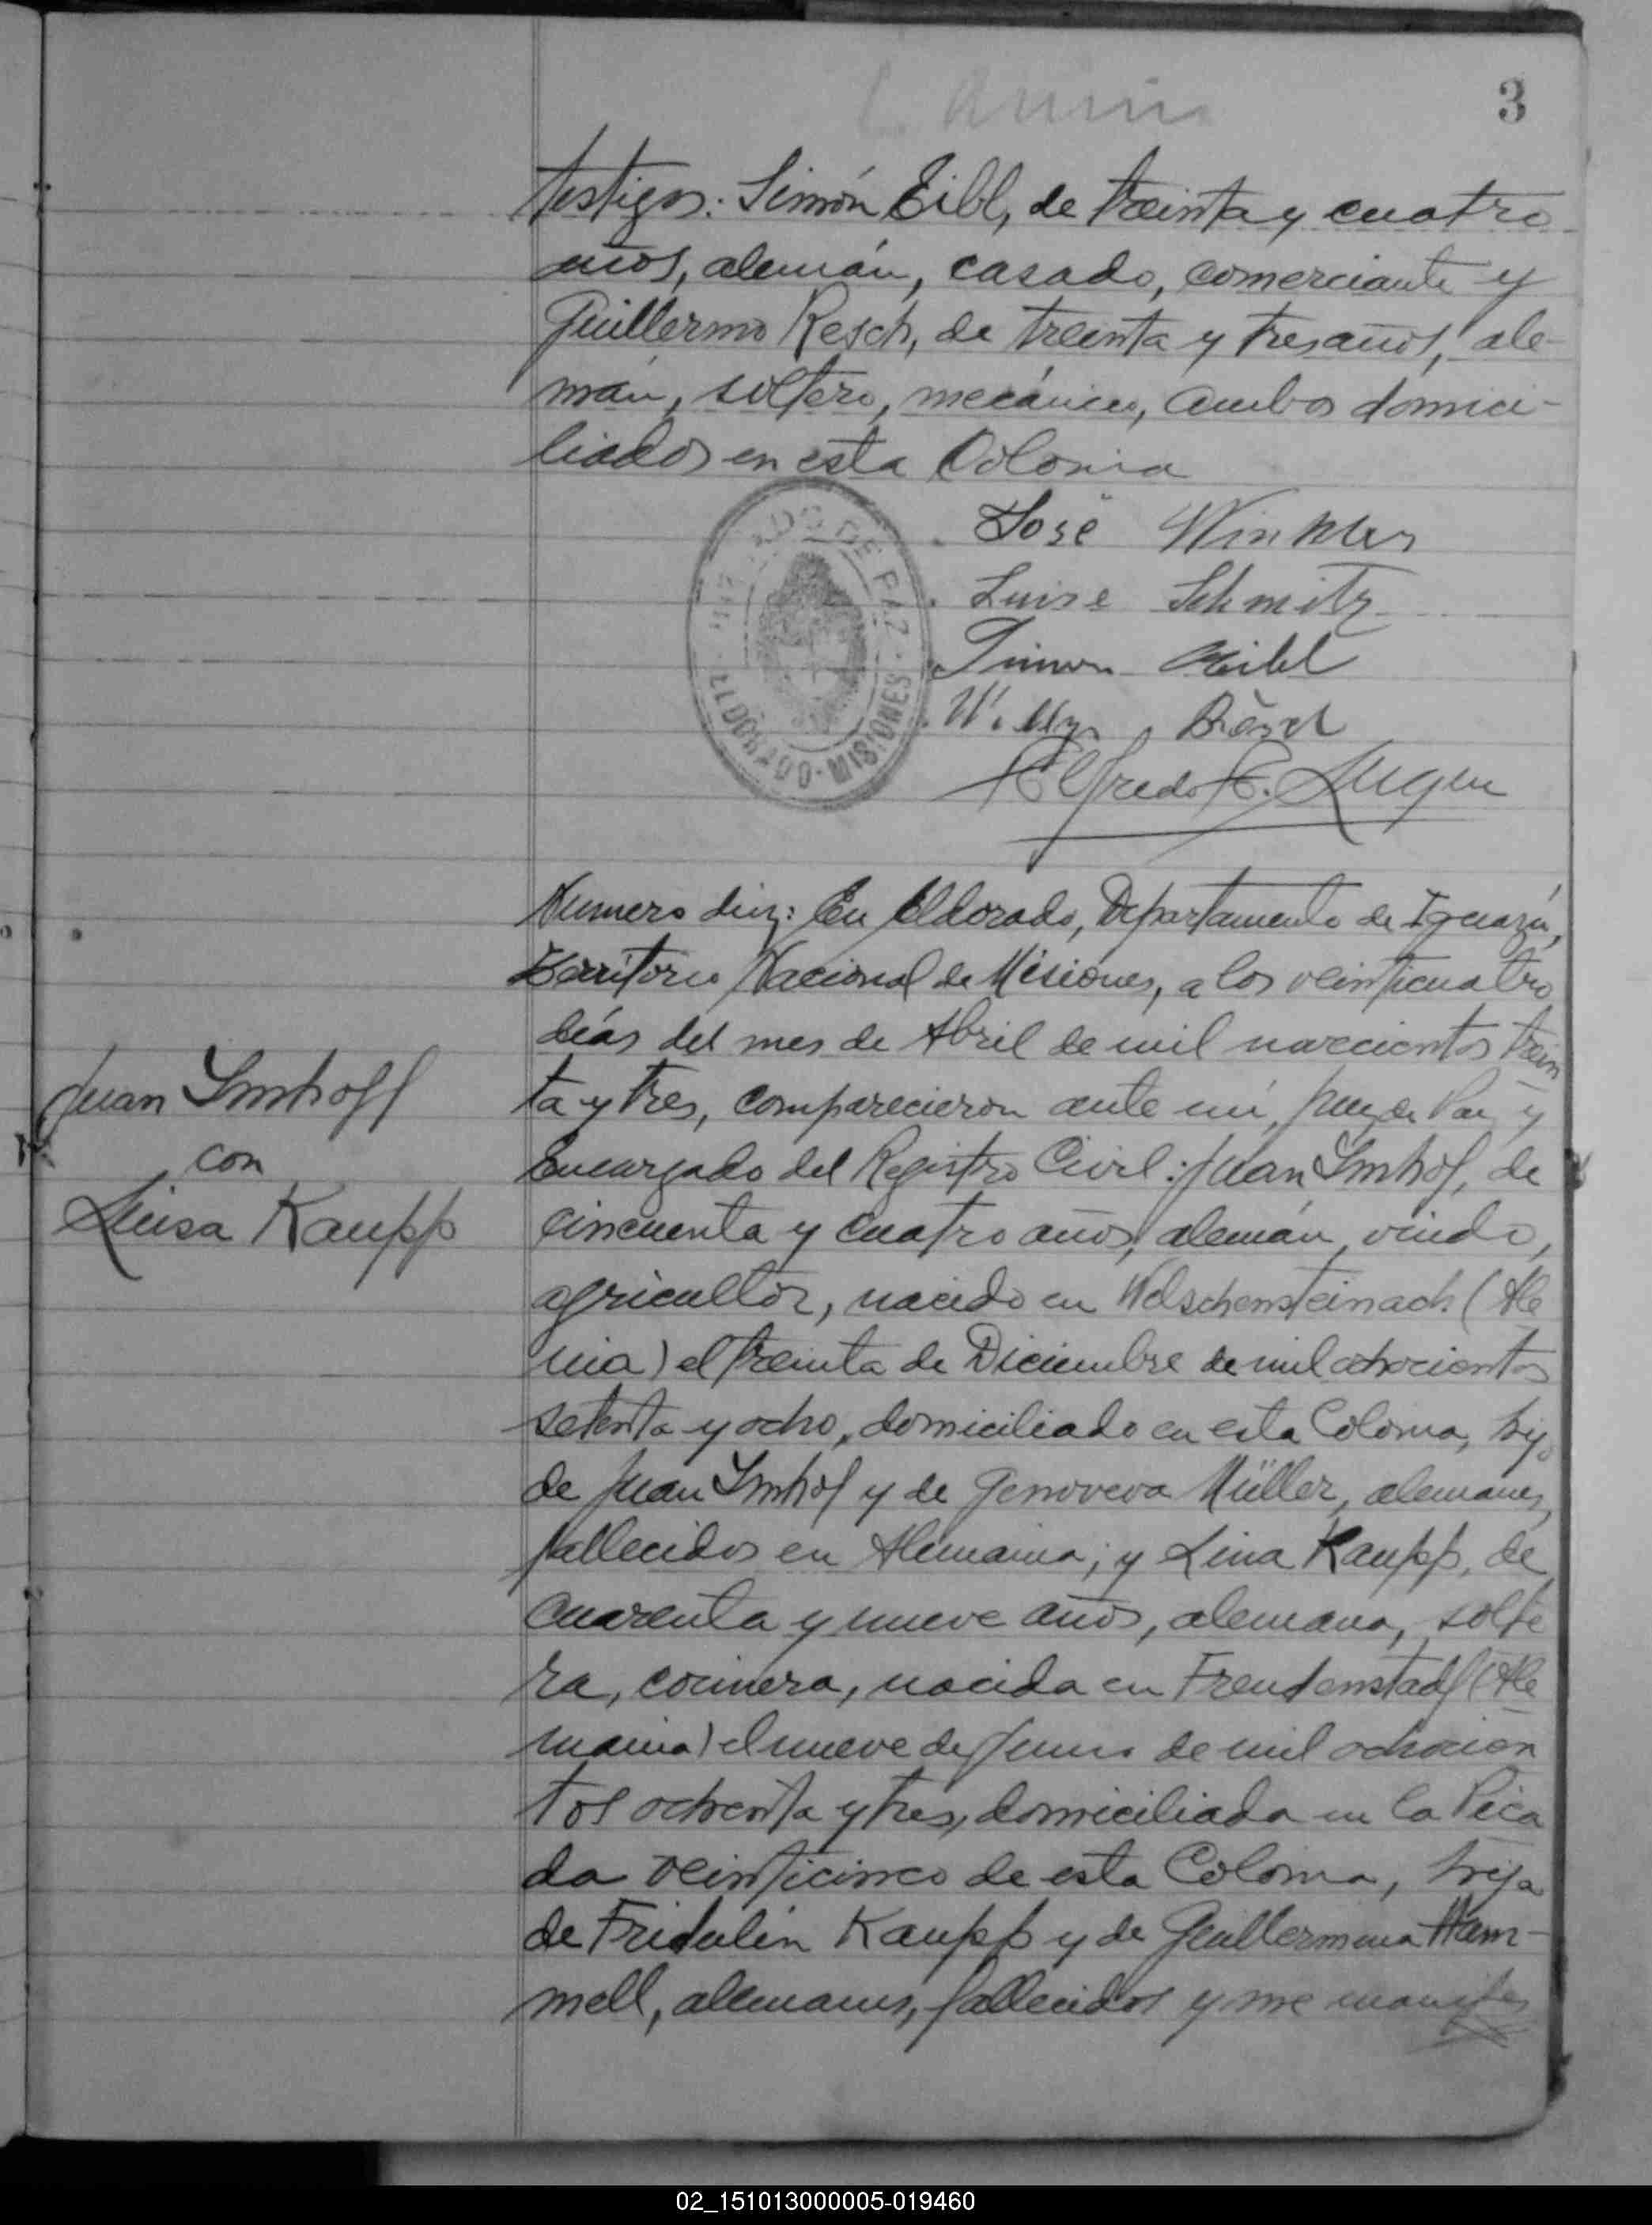 3
testigos: Simón Eibl, de treinta y cuatro
años, alemán, casado, comerciante y
Guillermo Resch, de treinta y tres años, ale-
mán, soltero, mecánico, ambos domici-
liados en esta Colonia
José Winkler
Luise Schmitz
Simon Eibl
Alfredo
JUZGADO DE PAZ
ELDORADO - MISIONES
Numero diez: En Eldorado, Departamento de Iguazú,
Territorio Nacional de Misiones, a los veinticuatro
días del mes de Abril de mil novecientos trein
ta y tres, comparecieron ante mí, Juez de Paz y
Encargado del Registro Civil: Juan Imhof, de
cincuenta y cuatro años, alemán, viudo,
agricultor, nacido en Welschensteinach (Ale
nia) el treinta de Diciembre de mil ochocientos
setenta y ocho, domiciliado en esta Colonia, hijo
de Juan Imhof y de Genoveva Müller, alemanes,
fallecidos en Alemania; y Lina Kaupp, de
cuarenta y nueve años, alemana, solte
ra, cocinera, nacida en Freudenstadt (Ale
mania) el nueve de Junio de mil ochocien
tos ochenta y tres, domiciliada en la Pica
da veinticinco de esta Colonia, hija
de Fridolin Kaupp y de Guillermina Ham-
mell, alemanes, fallecidos y me manifes
Juan Imhoff
con
Luisa Kaupp
02_151013000005-019460